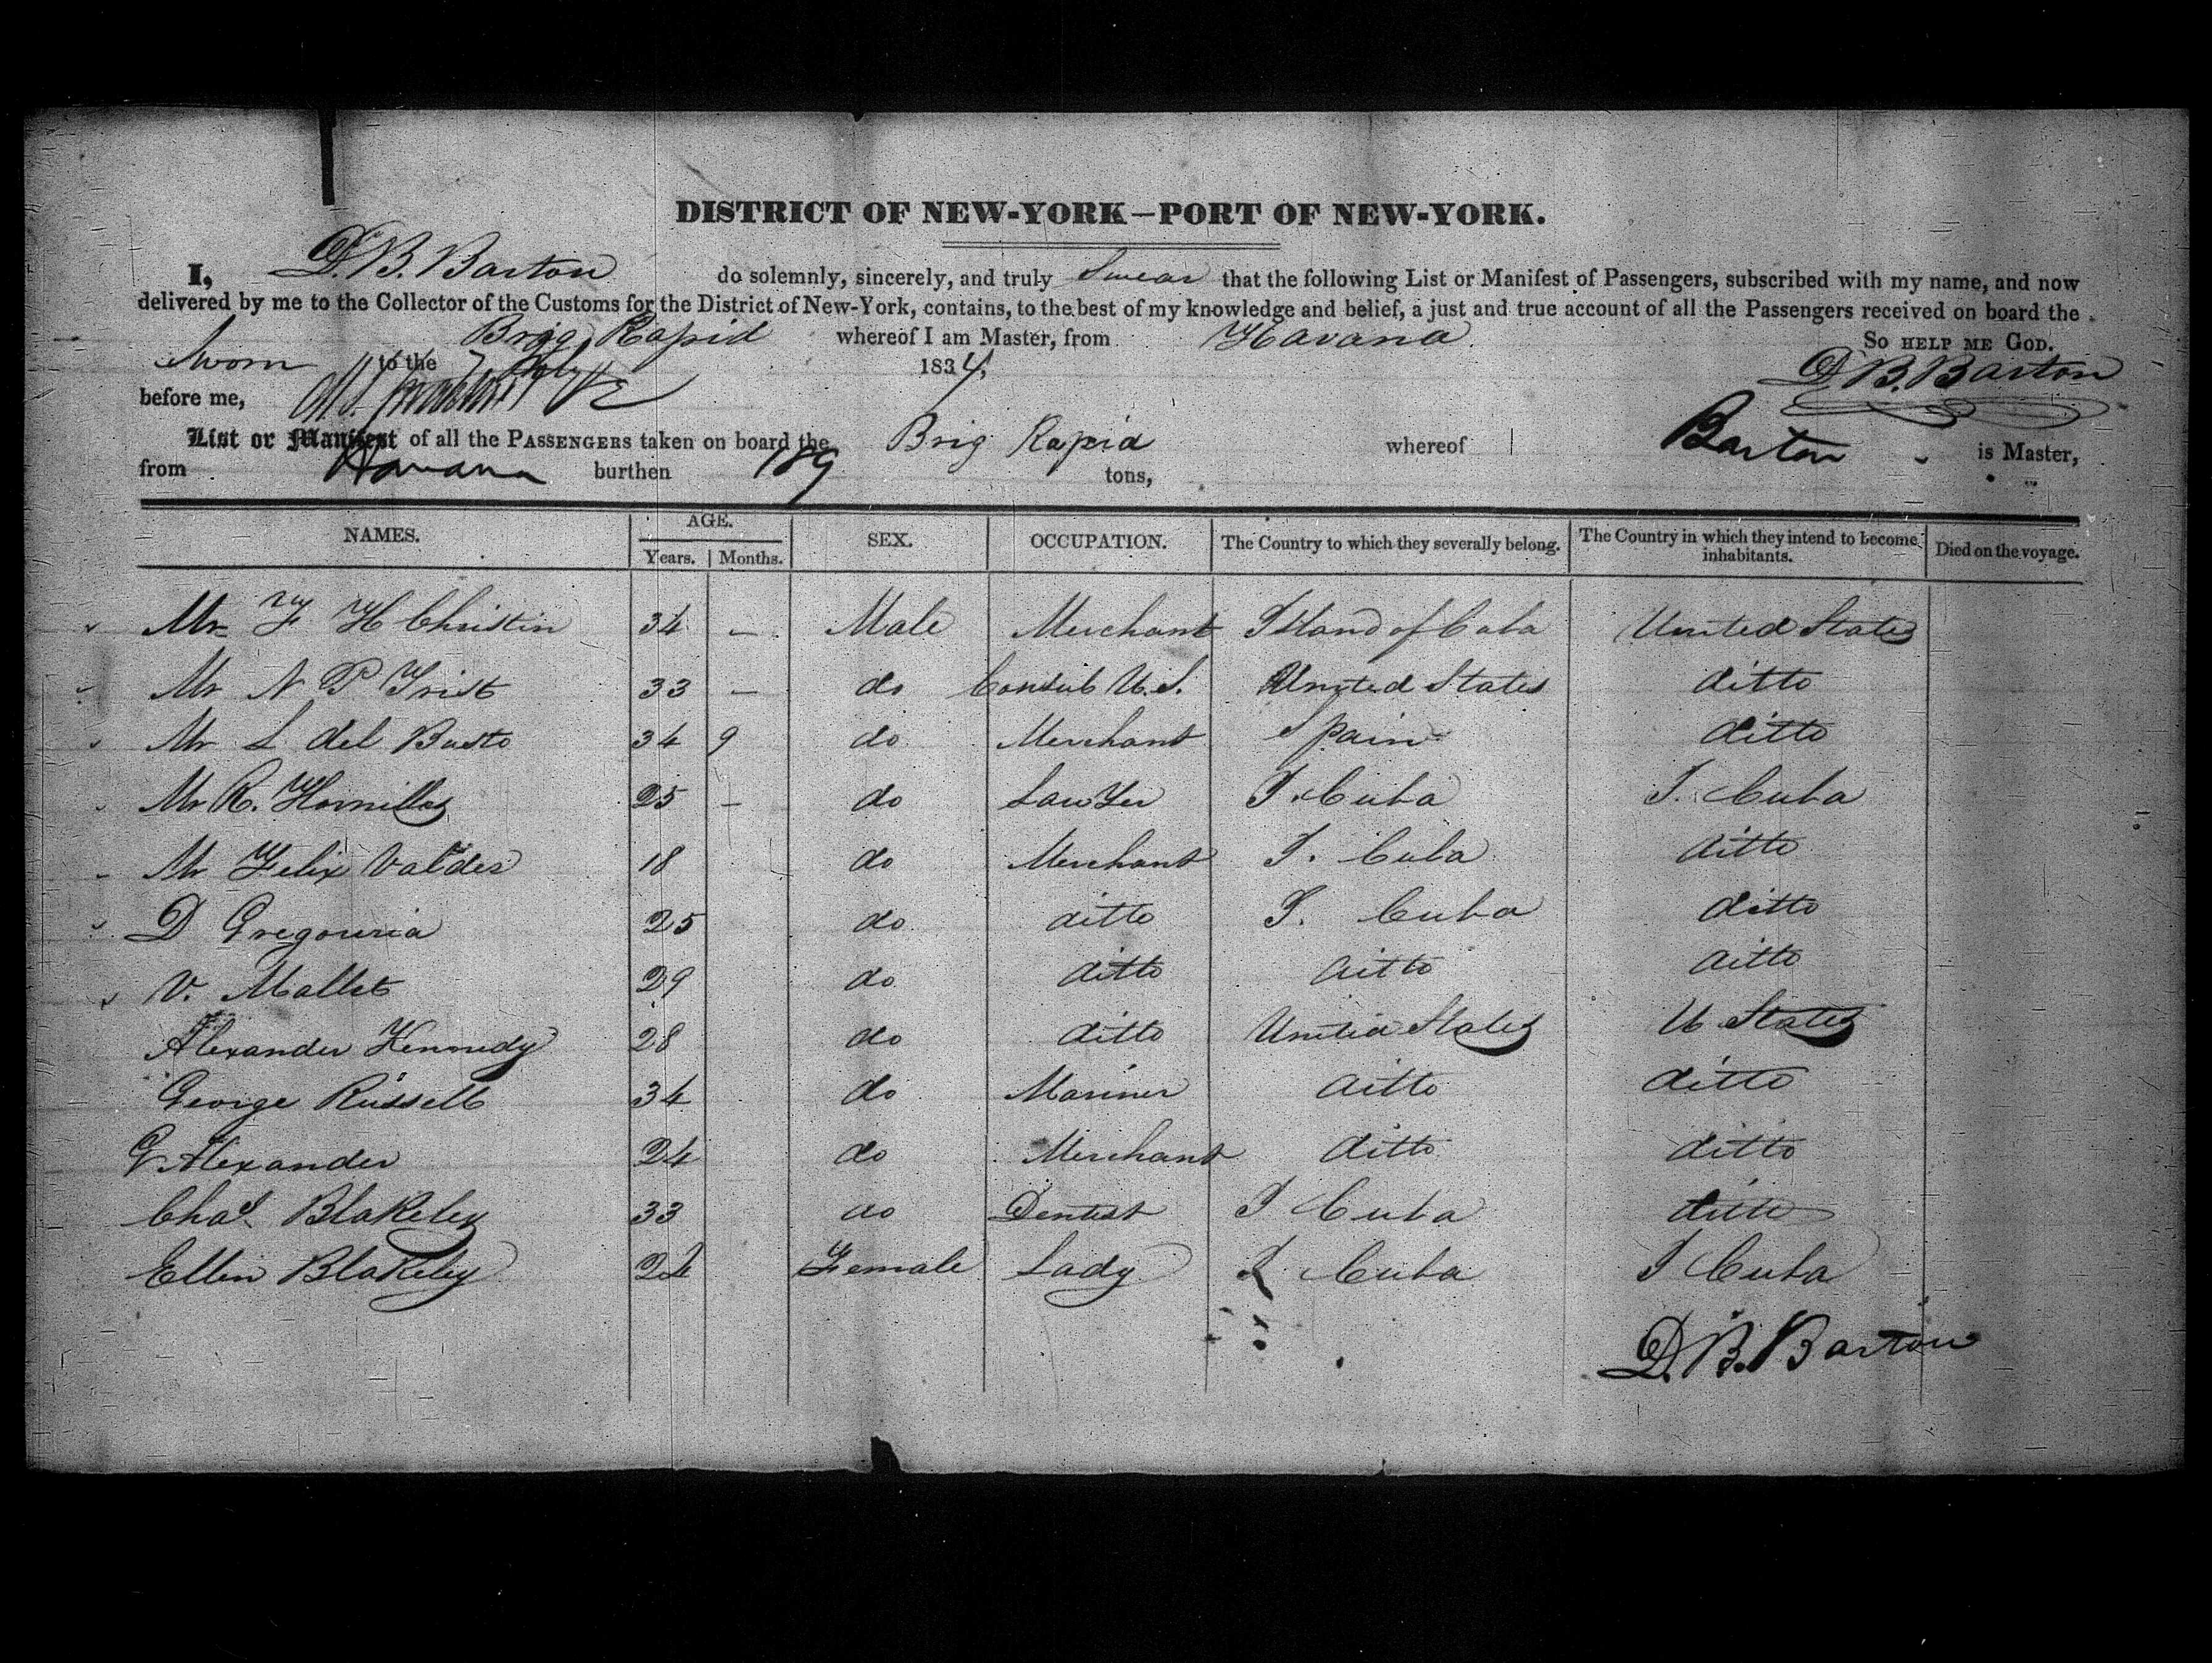 DISTRICT OF NEW-YORK—PORT OF NEW-YORK.
I, D. B. Barton do solemnly, sincerely, and truly Swear that the following List or Manifest of Passengers, subscribed with my name, and now
delivered by me to the Collector of the Customs for the District of New-York, contains, to the best of my knowledge and belief, a just and true account of all the Passengers received on board the
Brig Rapid whereof I am Master, from Havana. SO HELP ME GOD.
Sworn to the 1834. D. B. Barton
before me,
List or Manifest of all the PASSENGERS taken on board the Brig Rapid whereof Barton is Master,
from Havana burthen 189 tons,
NAMES. AGE. SEX. OCCUPATION. The Country to which they severally belong. The Country in which they intend to become inhabitants. Died on the voyage.
Years. Months.
Mr F H Christin 34 – Male Merchant Island of Cuba United States
Mr N P Trist 33 – do Consul U.S. United States ditto
Mr L del Busto 34 9 do Merchant Spain ditto
Mr R. Hornillos 25 – do Lawyer I. Cuba I. Cuba
Mr Felix Valdes 18 do Merchant I. Cuba ditto
D Gregouria 25 do ditto I. Cuba ditto
V. Mallet 29 do ditto ditto ditto
Alexander Kennedy 28 do ditto United States U States
George Russell 34 do Mariner ditto ditto
G Alexander 24 do Merchant ditto ditto
Chas. Blakeley 33 do Dentist I Cuba ditto
Ellen Blakeley 24 Female Lady I Cuba I Cuba
D. B. Barton